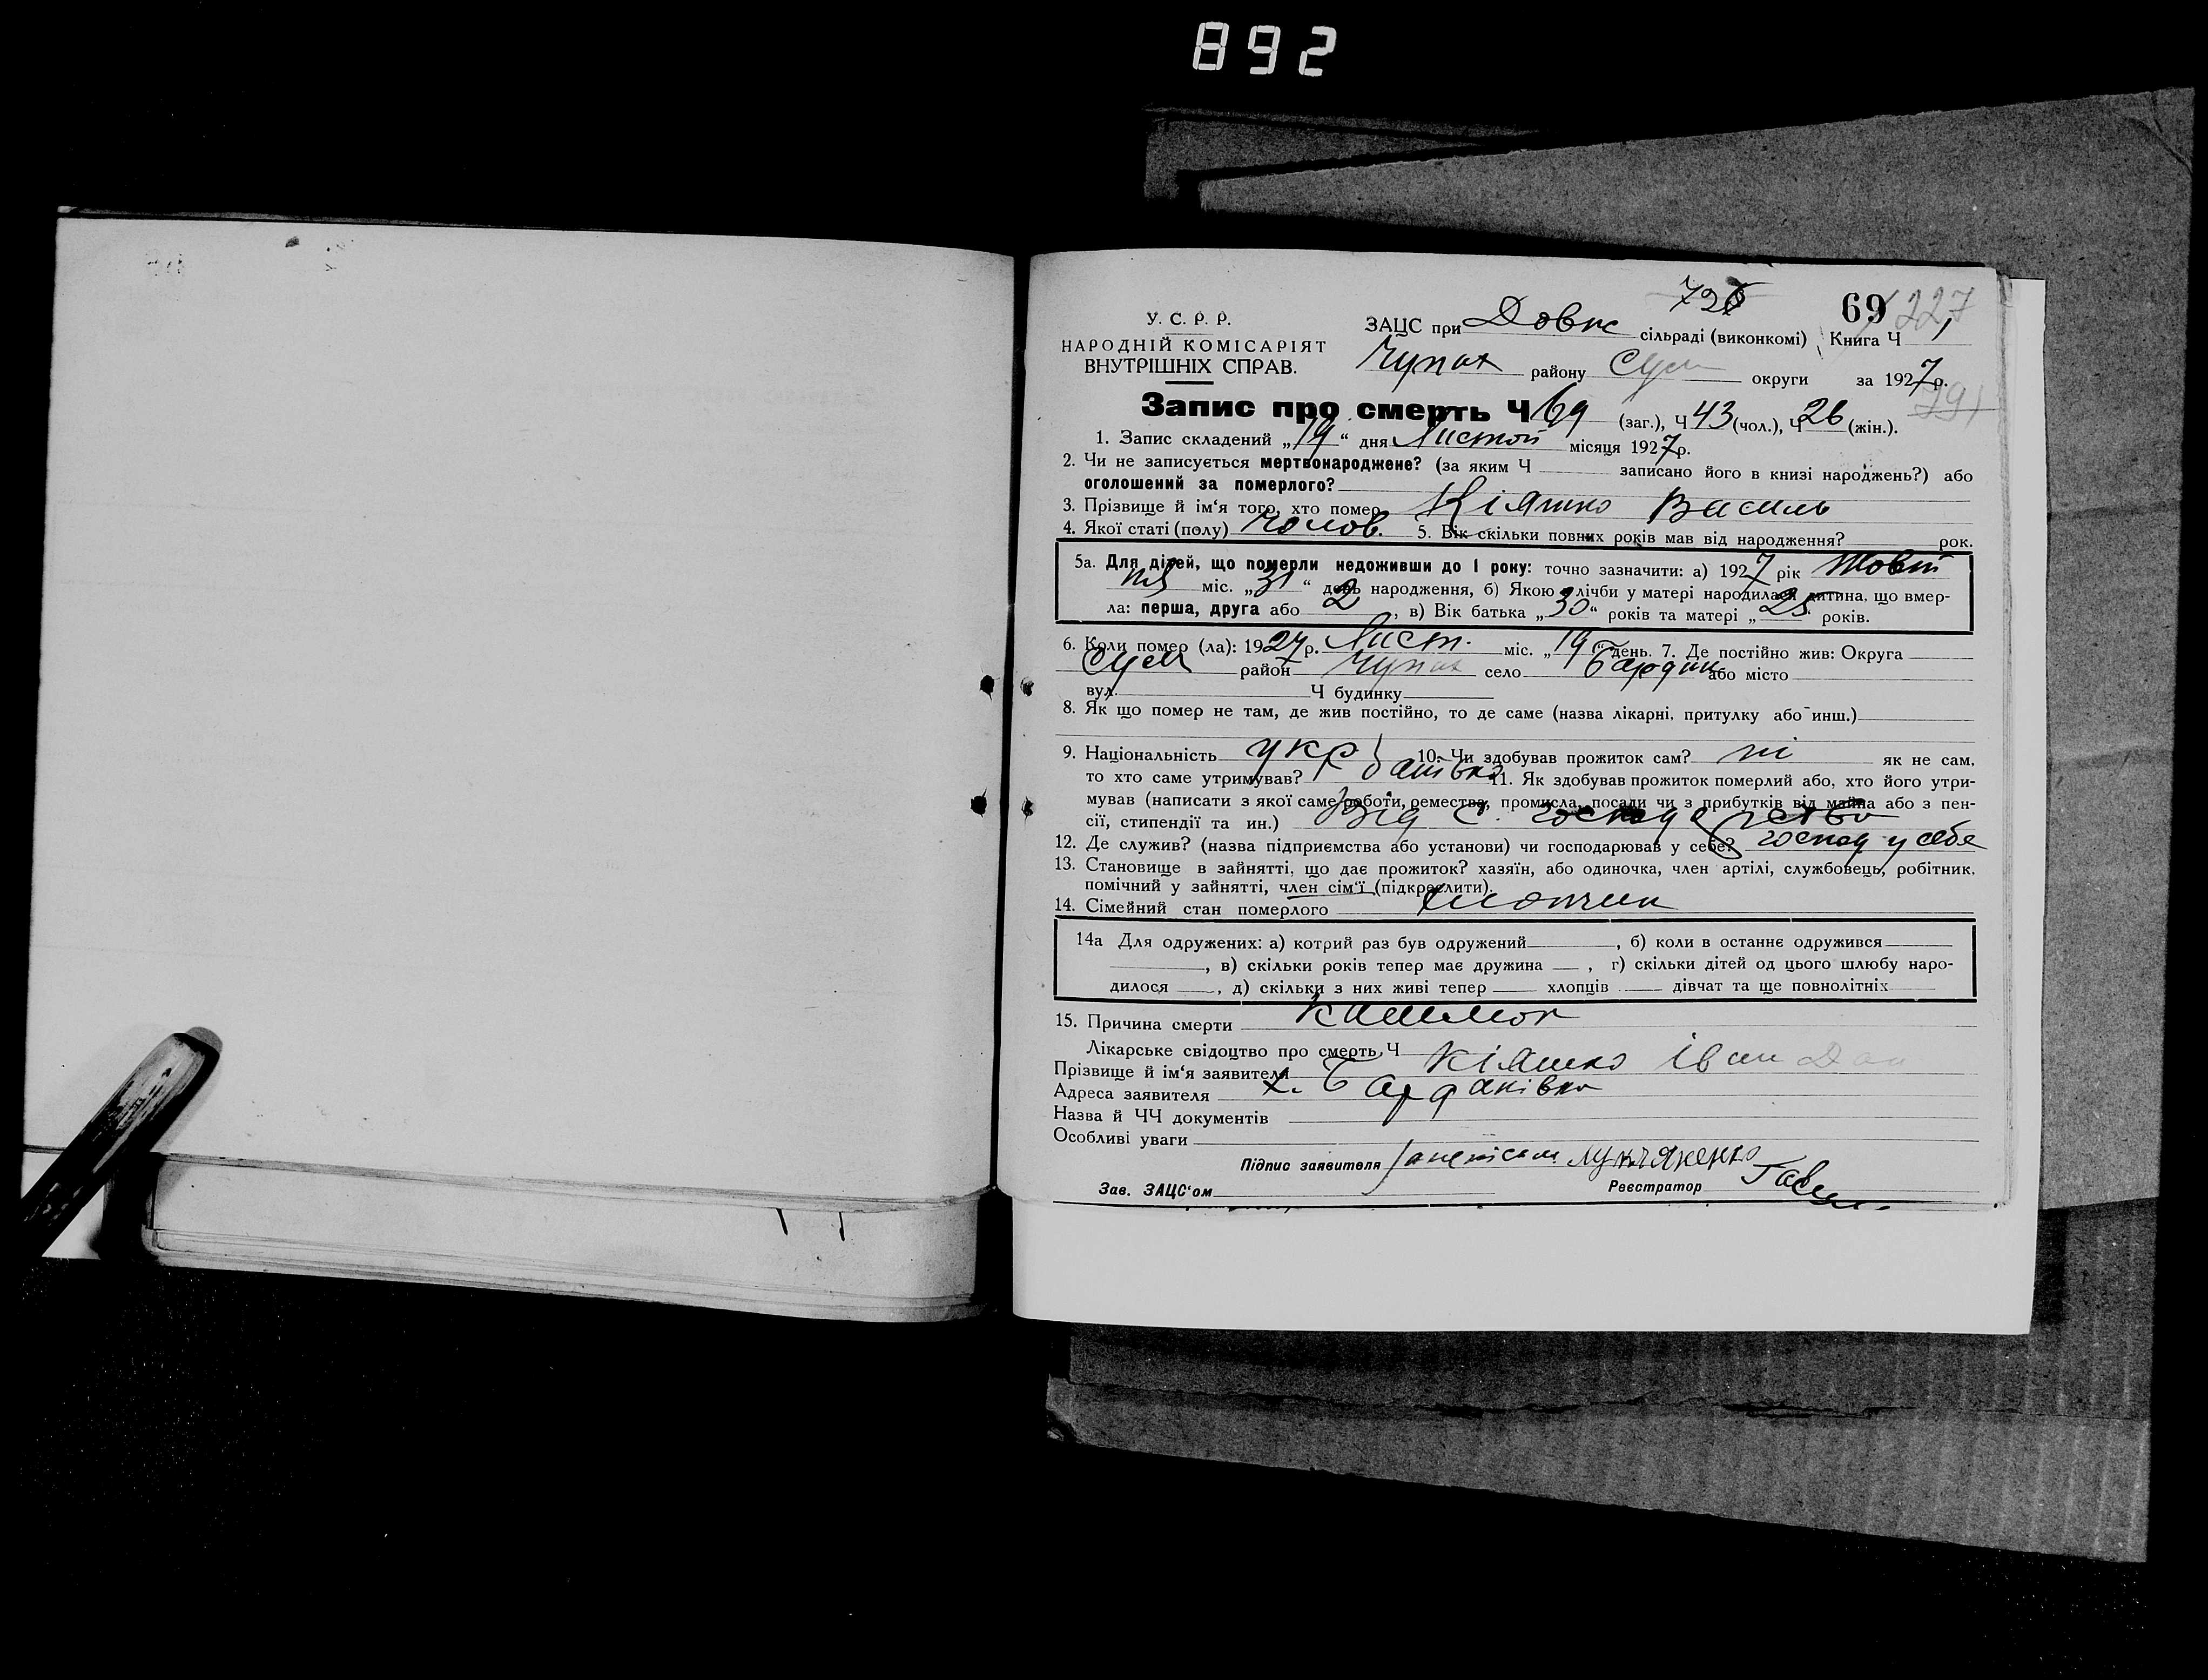 892
У. С. Р. Р.
НАРОДНІЙ КОМІСАРІЯТ
ВНУТРІШНІХ СПРАВ.
69
ЗАЦС при Довж сільраді (виконкомі) Книга Ч 1
Чупах району Сум округи за 1927 р.
Запис про смерть Ч 69 (заг.), Ч 43 (чол.), Ч 26 (жін.).
1. Запис складений „19“ дня Листоп місяця 1927 р.
2. Чи не записується мертвонароджене? (за яким Ч записано його в книзі народжень?) або
оголошений за померлого?
3. Прізвище й ім'я того, хто помер Кіяшко Василь
4. Якої статі (полу) чолов. 5. Вік скільки повних років мав від народження? рок.
5а. Для дітей, що померли недоживши до 1 року: точно зазначити: а) 1927 рік Жовт
ня міс. „31“ день народження, б) Якою з лічби у матері народилася дитина, що вмер-
ла: перша, друга або 2, в) Вік батька „30“ років та матері „25“ років.
6. Коли помер (ла): 1927 р. Лист. міс. „19“ день. 7. Де постійно жив: Округа
Сум район Чупах село або місто
вул. Ч будинку
8. Як що помер не там, де жив постійно, то де саме (назва лікарні, притулку або инш.)
9. Національність укр 10. Чи здобував прожиток сам? ні як не сам,
то хто саме утримував? батько 11. Як здобував прожиток померлий або, хто його утри-
мував (написати з якої саме роботи, ремества, промисла, посади чи з прибутків від майна або з пен-
сії, стипендії та ин.) Від с. господарства
12. Де служив? (назва підприємства або установи) чи господарював у себе? господ у себе
13. Становище в зайнятті, що дає прожиток? хазяїн, або одиночка, член артілі, службовець, робітник,
помічний у зайнятті, член сім'ї (підкреслити).
14. Сімейний стан померлого хлопчик
14а Для одружених: а) котрий раз був одружений , б) коли в останнє одружився
, в) скільки років тепер має дружина , г) скільки дітей од цього шлюбу наро-
дилося , д) скільки з них живі тепер хлопців дівчат та ще повнолітніх
15. Причина смерти кашлюк
Лікарське свідоцтво про смерть Ч
Прізвище й ім'я заявителя Кіяшко Іван
Адреса заявителя х. Бардаківка
Назва й ЧЧ документів
Особливі уваги
Підпис заявителя
Зав. ЗАЦС'ом Реєстратор